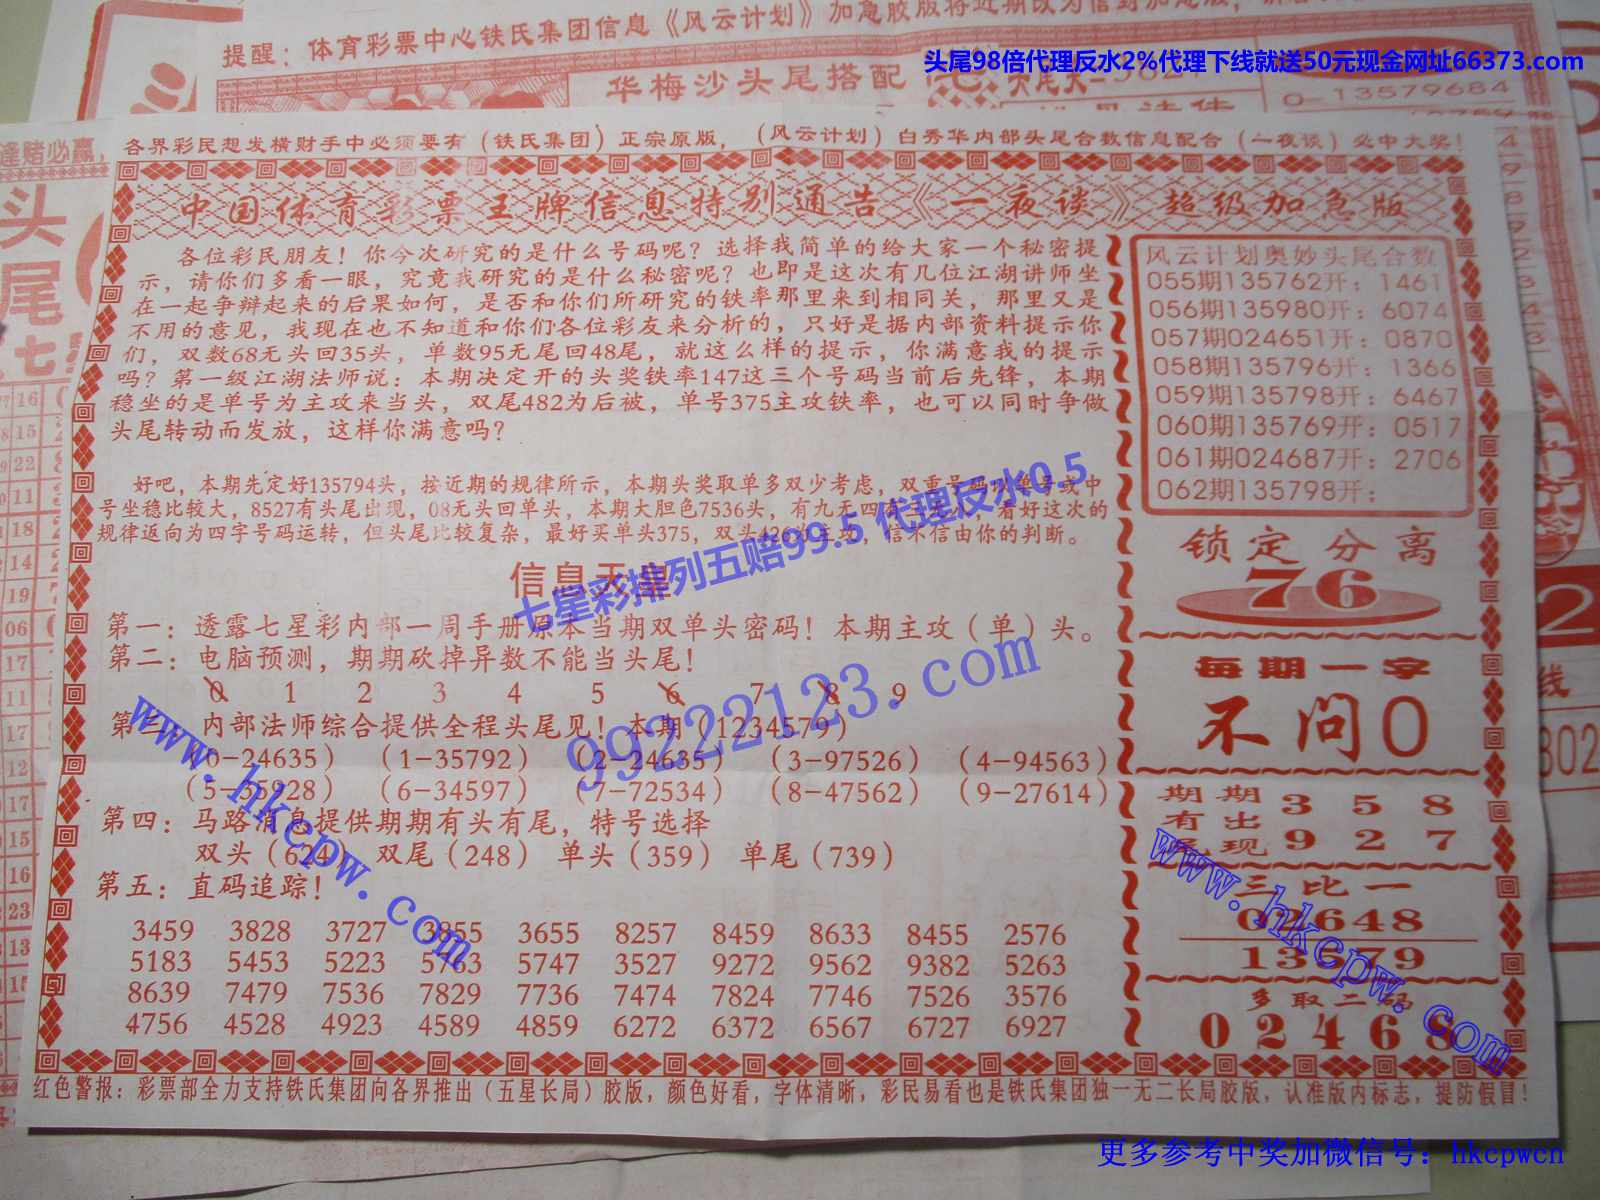 提醒：体育彩票中心铁氏集团信息《风云计划》加急胶版将近期改为信封加急版，
头尾98倍代理反水2%代理下线就送50元现金网址66373.com
华梅沙头尾搭配
0-13579684
逢赌必赢，
头
尾
七
各界彩民想发横财手中必须要有（铁氏集团）正宗原版，（风云计划）白秀华内部头尾合数信息配合（一夜谈）必中大奖！
中国体育彩票王牌信息特别通告《一夜谈》超级加急版
各位彩民朋友！你今次研究的是什么号码呢？选择我简单的给大家一个秘密提
示，请你们多看一眼，究竟我研究的是什么秘密呢？也即是这次有几位江湖讲师坐
在一起争辩起来的后果如何，是否和你们所研究的铁率那里来到相同关，那里又是
不用的意见，我现在也不知道和你们各位彩友来分析的，只好是据内部资料提示你
们，双数68无头回35头，单数95无尾回48尾，就这么样的提示，你满意我的提示
吗？第一级江湖法师说：本期决定开的头奖铁率147这三个号码当前后先锋，本期
稳坐的是单号为主攻来当头，双尾482为后被，单号375主攻铁率，也可以同时争做
头尾转动而发放，这样你满意吗？
好吧，本期先定好135794头，按近期的规律所示，本期头奖取单多双少考虑，双重号码则单号或中
号坐稳比较大，8527有头尾出现，08无头回单头，本期大胆色7536头，有九无四有三无八，看好这次的
规律返向为四字号码运转，但头尾比较复杂，最好买单头375，双头426为主攻，信不信由你的判断。
七星彩排列五赔99.5 代理反水0.5
信息天皇
第一：透露七星彩内部一周手册原本当期双单头密码！本期主攻（单）头。
第二：电脑预测，期期砍掉异数不能当头尾！
0 1 2 3 4 5 6 7 8 9
第三：内部法师综合提供全程头尾见！本期（1234579）
（0-24635） （1-35792） （2-24635） （3-97526） （4-94563）
（5-35928） （6-34597） （7-72534） （8-47562） （9-27614）
第四：马路消息提供期期有头有尾，特号选择
双头（624） 双尾（248） 单头（359） 单尾（739）
第五：直码追踪！
3459 3828 3727 3855 3655 8257 8459 8633 8455 2576
5183 5453 5223 5763 5747 3527 9272 9562 9382 5263
8639 7479 7536 7829 7736 7474 7824 7746 7526 3576
4756 4528 4923 4589 4859 6272 6372 6567 6727 6927
99222123.com
www.hkcpw.com
风云计划奥妙头尾合数
055期135762开：1461
056期135980开：6074
057期024651开：0870
058期135796开：1366
059期135798开：6467
060期135769开：0517
061期024687开：2706
062期135798开：
锁定分离
76
每期一字
不问0
期期 3 5 8
有出
尾现 9 2 7
三比一
02648
13579
多取二码
02468
www.hkcpw.com
红色警报：彩票部全力支持铁氏集团向各界推出（五星长局）胶版，颜色好看，字体清晰，彩民易看也是铁氏集团独一无二长局胶版，认准版内标志，提防假冒！
更多参考中奖加微信号：hkcpwcn